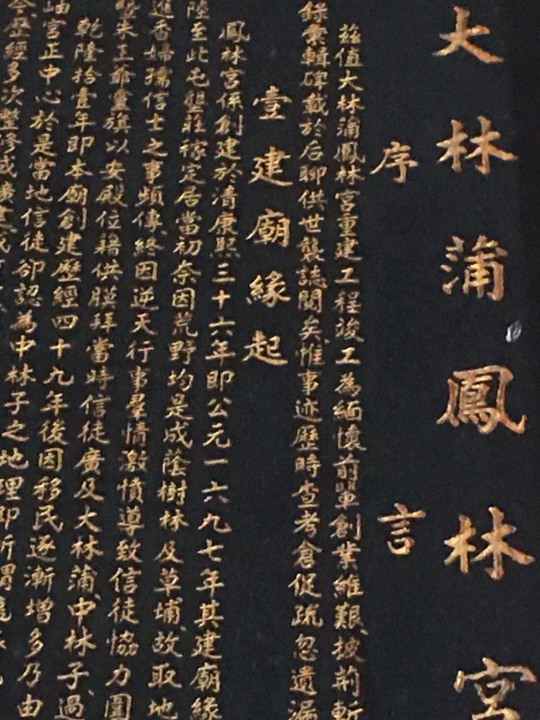 大林蒲鳳林宮
序言
茲值大林蒲鳳林宮重建工程竣工為緬懷前輩創業維艱披荊斬
錄彙輯碑載於后聊供世襲誌閱矣惟事迹歷時查考倉促疏忽遺漏
壹建廟緣起
鳳林宮係創建於清康熙三十六年即公元一六九七年其建廟緣
陸至此屯駐莊稼定居當初奈因荒野均是成蔭樹林及草埔故取地
進香婦孺信士之事頻傳終因逆天行事羣情激憤導致信徒協力圍
朱王爺畫旗以安殿位藉供膜拜當時信徒廣及大林蒲中林子過
乾隆拾壹年即本廟創建歷經四十九年後因移民逐漸增多乃由
岫宮正中心於是當地信徒卻認為中林子之地理即所謂
經多次整修或擴建